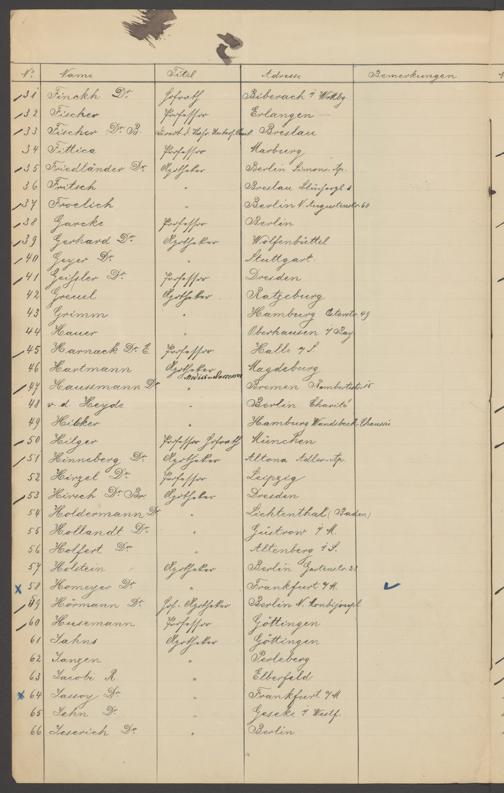 No. Name Titel Adresse Bemerkungen
31 Finckh Dr. Hofrath Biberach
32 Fischer Professor Erlangen
33 Fischer Dr. B. Breslau
34 Fittica Professor Marburg
35 Friedländer Dr. Apotheker Berlin
36 Fritsch " Breslau
37 Froelich " Berlin N. Auguststr 60
38 Garcke Professor Berlin
39 Gerhard Dr. Apotheker Wolfenbüttel
40 Geyer Dr. " Stuttgart
41 Geißler Dr. Professor Dresden
42 Greuel Apotheker Ratzeburg
43 Grimm " Hamburg
44 Hauer " Oberhausen
45 Harnack Dr. E. Professor Halle a/S.
46 Hartmann Apotheker Magdeburg
47 Haussmann Dr. " Bremen
48 v. d. Heyde " Berlin Charité
49 " Hamburg Wandsbeck Chaussee
50 Hilger Professor Hofrath München
51 Hinneberg Dr. Apotheker Altona Adler-Ap.
52 Hirzel Dr. Professor Leipzig
53 Hirsch Dr. Apotheker Dresden
54 Holdermann Dr. " Lichtenthal (Baden)
55 Hollandt Dr. " Güstrow i/M.
56 Holfert Dr. " Altenberg
57 Holstein Apotheker Berlin
58 Homeyer Dr. " Frankfurt a/M.
59 Hörmann Dr. Apotheker Berlin N.
60 Husemann Professor Göttingen
61 Jahns Apotheker Göttingen
62 " Perleberg
63 Jacobi R. " Elberfeld
64 Jassoy Dr. " Frankfurt a/M
65 Jehn Dr. " Geseke i/Westf.
66 Jeserich Dr. " Berlin